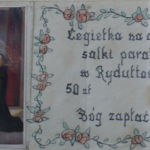 Cegiełka na
salki para
w Rydułto
50 zł
Bóg zapłać